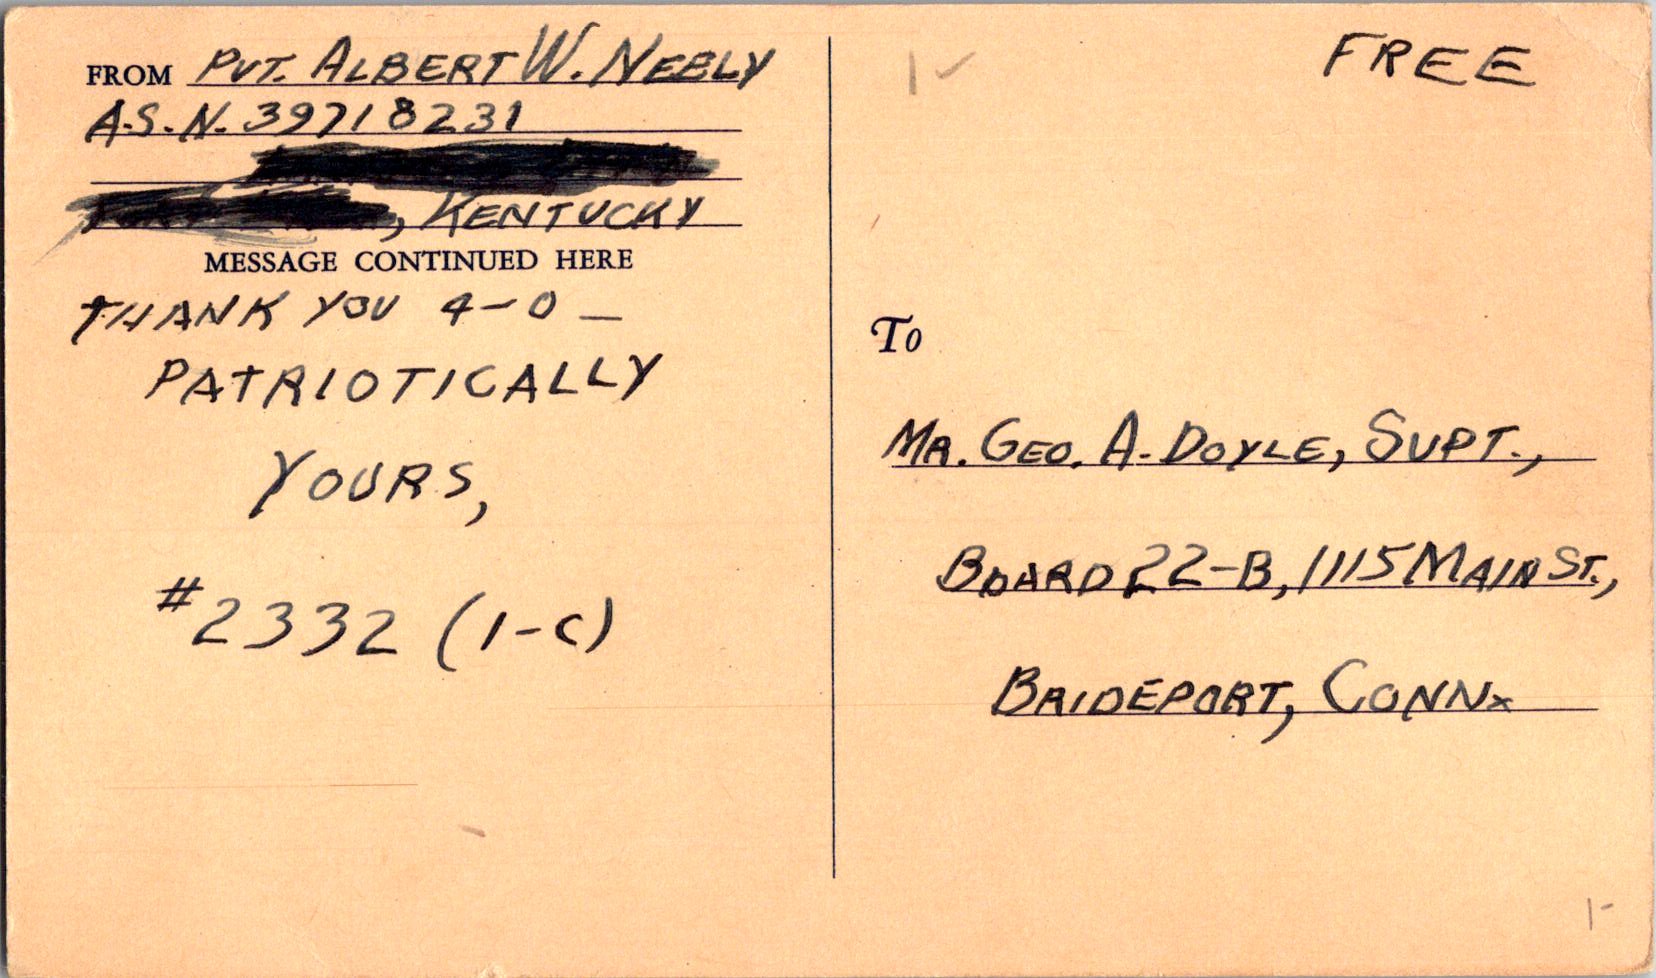 FROM PVT. ALBERT W. NEELY
A.S.N. 39718231
, KENTUCKY
MESSAGE CONTINUED HERE
THANK YOU 4-0 —
PATRIOTICALLY
YOURS,
#2332 (1-C)
FREE
To
MR. GEO. A. DOYLE, SUPT.,
BOARD 22-B, 1115 MAIN ST.,
BRIDEPORT, CONN.
1-